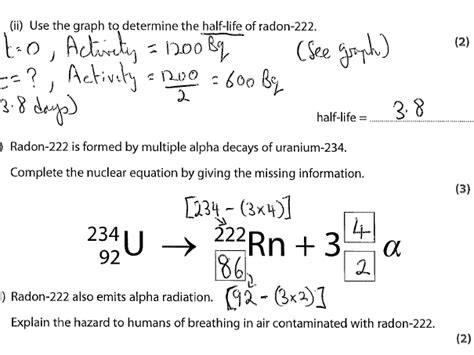 (ii) Use the graph to determine the half-life of radon-222.
(2)
t=0, Activity = 1200 Bq (See graph)
t=?, Activity = 1200/2 = 600 Bq
3.8 days)
half-life = 3.8
) Radon-222 is formed by multiple alpha decays of uranium-234.
Complete the nuclear equation by giving the missing information.
(3)
[234 – (3×4)]
234 92 U → 222 86 Rn + 3 4 2 α
) Radon-222 also emits alpha radiation. [92 – (3×2)]
Explain the hazard to humans of breathing in air contaminated with radon-222.
(2)